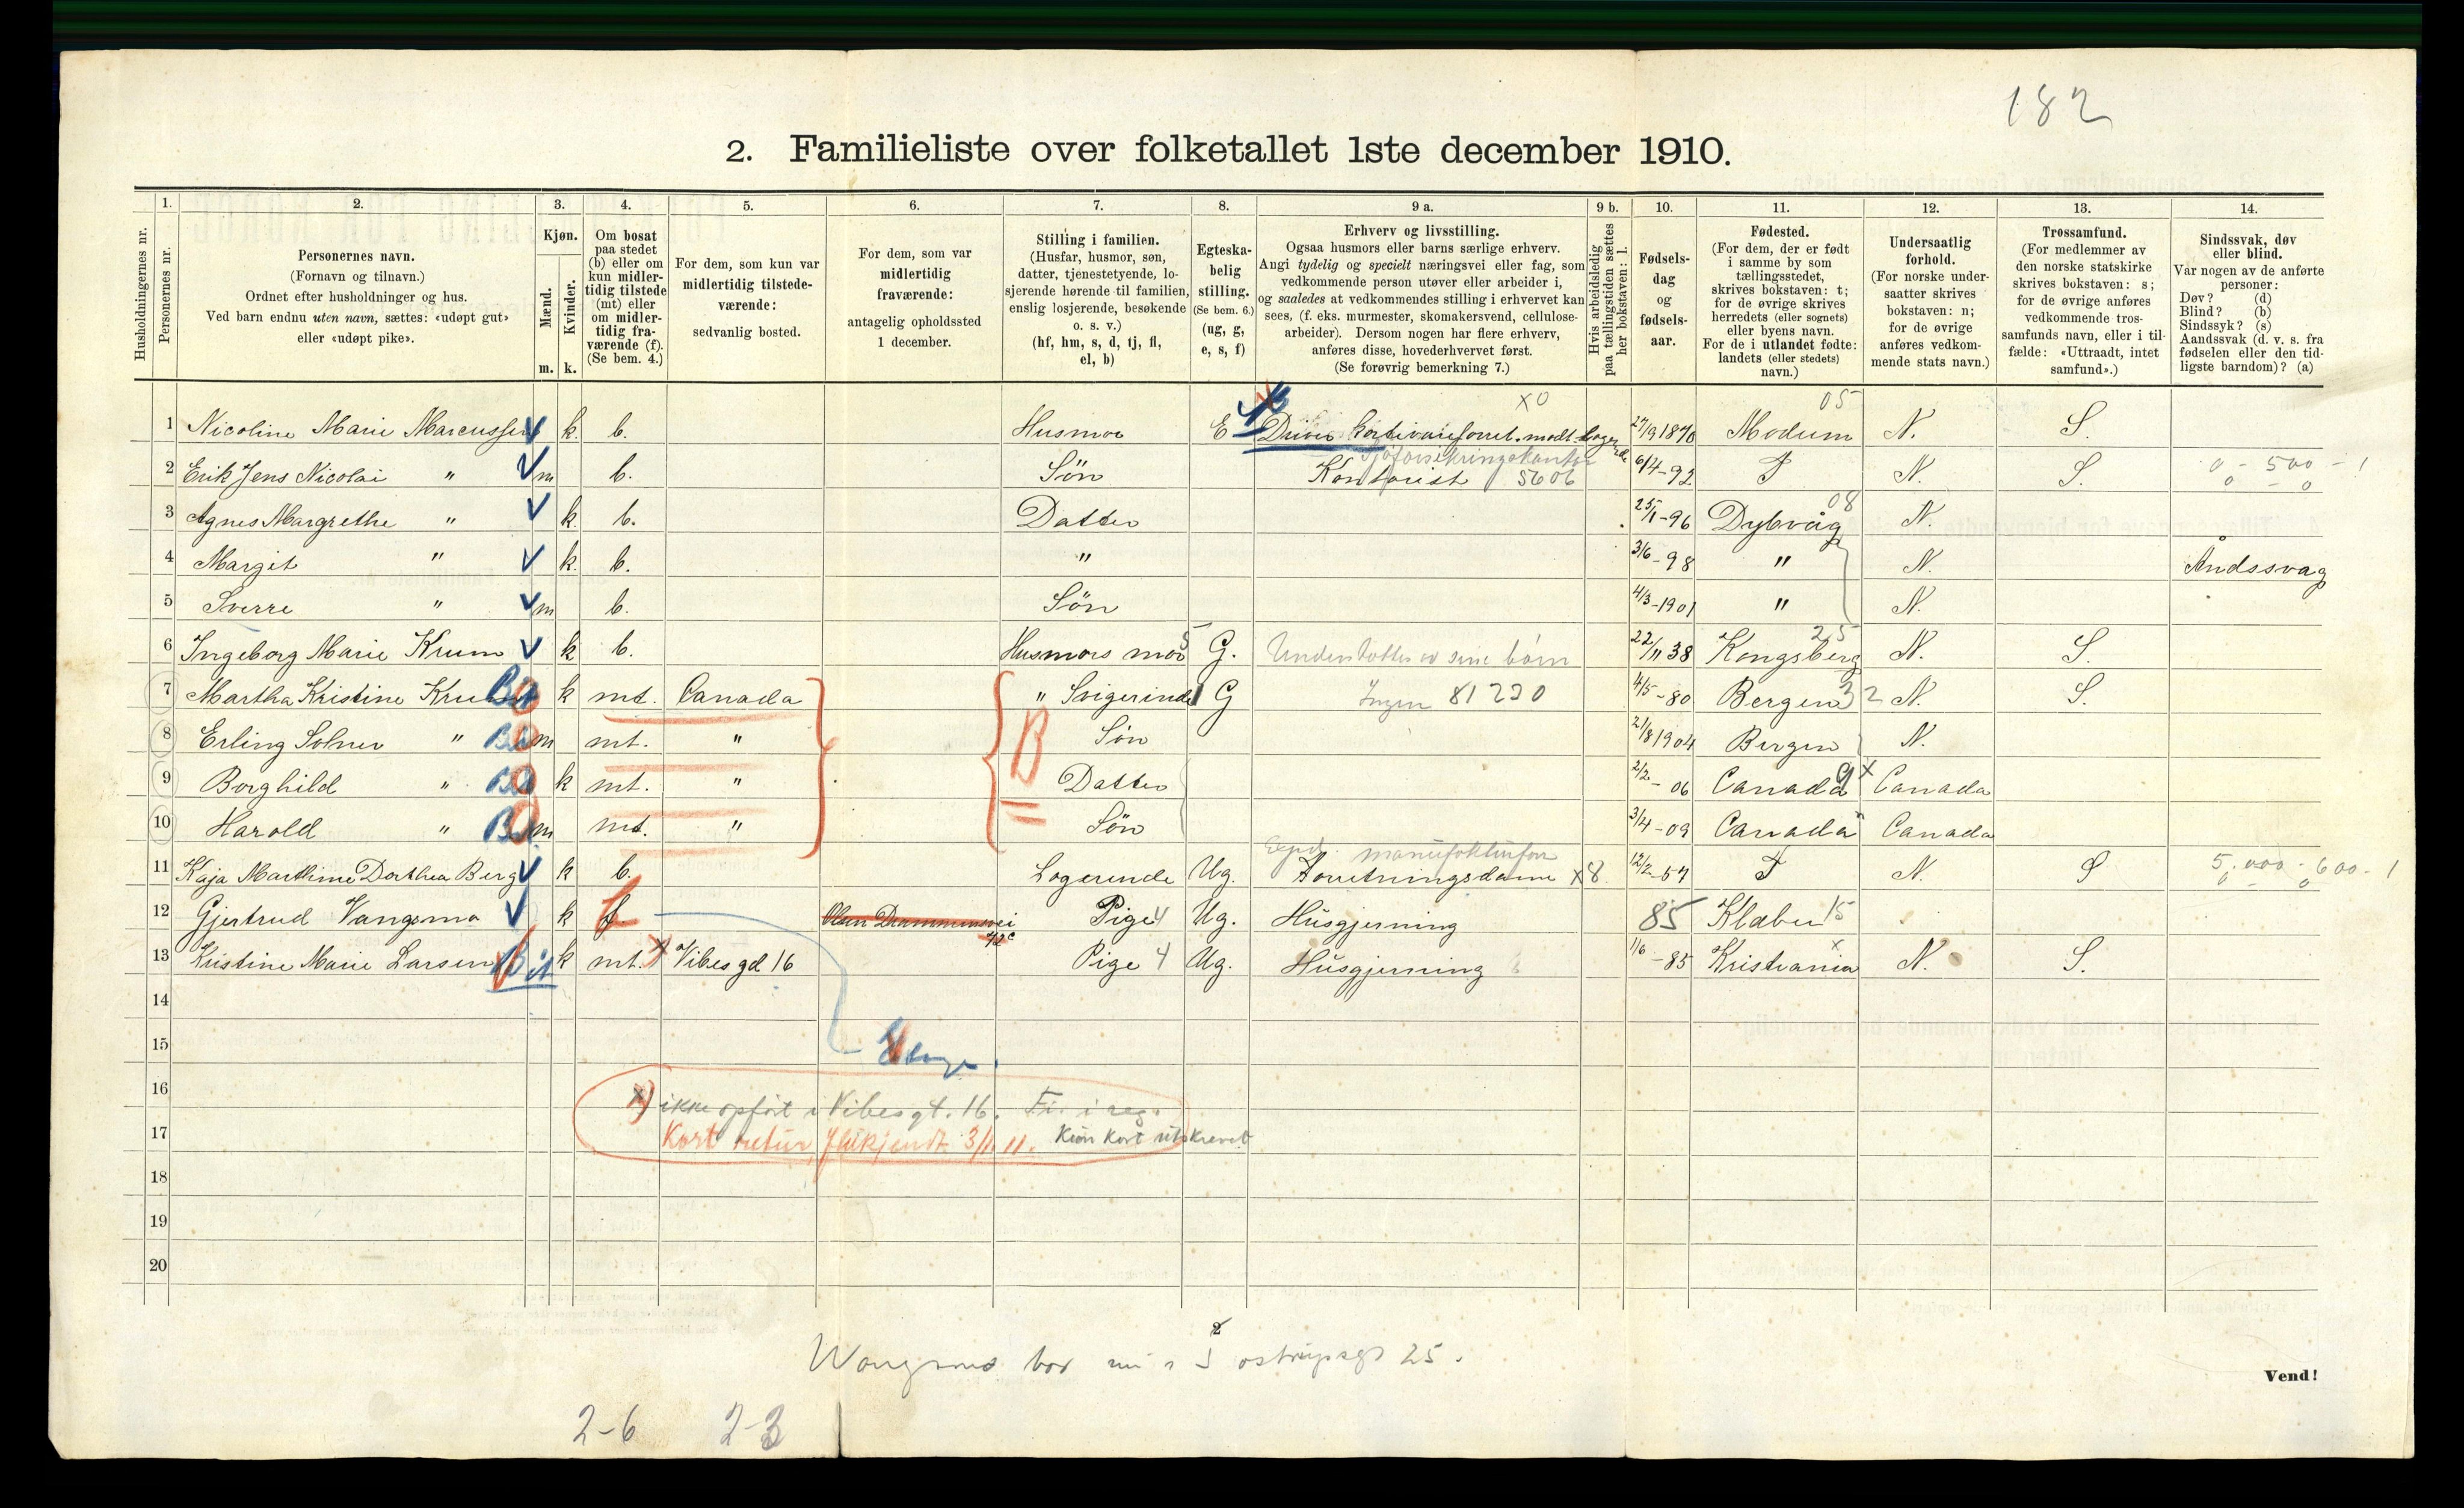 182
2. Familieliste over folketallet 1ste december 1910.
Husholdningernes nr.
1. Personernes nr.
2. Personernes navn.
(Fornavn og tilnavn.)
Ordnet efter husholdninger og hus.
Ved barn endnu uten navn, sættes: «udøpt gut»
eller «udøpt pike».
3. Kjøn.
Mænd. m.
Kvinder. k.
4. Om bosat
paa stedet
(b) eller om
kun midler-
tidig tilstede
(mt) eller
om midler-
tidig fra-
værende (f).
(Se bem. 4.)
5. For dem, som kun var
midlertidig tilstede-
værende:
sedvanlig bosted.
6. For dem, som var
midlertidig
fraværende:
antagelig opholdssted
1 december.
7. Stilling i familien.
(Husfar, husmor, søn,
datter, tjenestetyende, lo-
sjerende hørende til familien,
enslig losjerende, besøkende
o. s. v.)
(hf, hm, s, d, tj, fl,
el, b)
8. Egteska-
belig
stilling.
(Se bem. 6.)
(ug, g,
e, s, f)
9 a. Erhverv og livsstilling.
Ogsaa husmors eller barns særlige erhverv.
Angi tydelig og specielt næringsvei eller fag, som
vedkommende person utøver eller arbeider i,
og saaledes at vedkommendes stilling i erhvervet kan
sees, (f. eks. murmester, skomakersvend, cellulose-
arbeider). Dersom nogen har flere erhverv,
anføres disse, hovederhvervet først.
(Se forøvrig bemerkning 7.)
9 b. Hvis arbeidsledig
paa tællingstiden sættes
her bokstaven: l.
10. Fødsels-
dag
og
fødsels-
aar.
11. Fødested.
(For dem, der er født
i samme by som
tællingsstedet,
skrives bokstaven: t;
for de øvrige skrives
herredets (eller sognets)
eller byens navn.
For de i utlandet fødte:
landets (eller stedets)
navn.)
12. Undersaatlig
forhold.
(For norske under-
saatter skrives
bokstaven: n;
for de øvrige
anføres vedkom-
mende stats navn.)
13. Trossamfund.
(For medlemmer av
den norske statskirke
skrives bokstaven: s;
for de øvrige anføres
vedkommende tros-
samfunds navn, eller i til-
fælde: «Uttraadt, intet
samfund».)
14. Sindssvak, døv
eller blind.
Var nogen av de anførte
personer:
Døv? (d)
Blind? (b)
Sindssyk? (s)
Aandssvak (d. v. s. fra
fødselen eller den tid-
ligste barndom)? (a)
x0 05
1 Nicoline Marie Marcussen k. b. Husmor E Driver 27/9 1870 Modum N. S.
2 Erik Jens Nicolai " m b. Søn Kontorist 5606 6/4-92 T N. S. 0 - 500 - 1
0 - 0
3 Agnes Margrethe " k. b. Datter 25/1-96 Dybvåg 08 N.
4 Margit " k. b. " 3/6-98 " N. Åndssvag
5 Sverre " m b. Søn 4/3-1901 " N.
6 Ingeborg Marie Krum k b. Husmors mor 5 G. Understøttes av sine børn 22/11 38 Kongsberg 25 N. S.
7 Martha Kristine k mt. Canada " Svigerinde G Ingen 81220 4/5-80 Bergen 32 N. S.
8 Erling " m mt. " B Søn 21/8 1904 Bergen N.
9 Borghild " k mt. " Datter 2/2-06 Canada Canada
10 Harald " m mt. " Søn 3/4-09 Canada Canada
Exped. manufakturforr
11 Kaja Marthine Dorthea Berg k b. Logerende Ug. Forretningsdame x8 12/2-57 T N. S 5.000 - 600 - 1
0 - 0
12 Gjertrud Vangsmo k f. Pige 4 Ug. Husgjerning 85 Klæbu 15
13 Kristine Marie Larsen k mt. x Vibes gd 16 Pige 4 Ug. Husgjerning 1/6-85 Kristiania x N. S.
14
15
16 x) ikke opført i Vibesgt. 16. Fi. i reg.
17 Kort retur 3/1. 11. Kort utskrevet
18
19
20
2
bor nu i 25.
Vend!
2-6 2-3